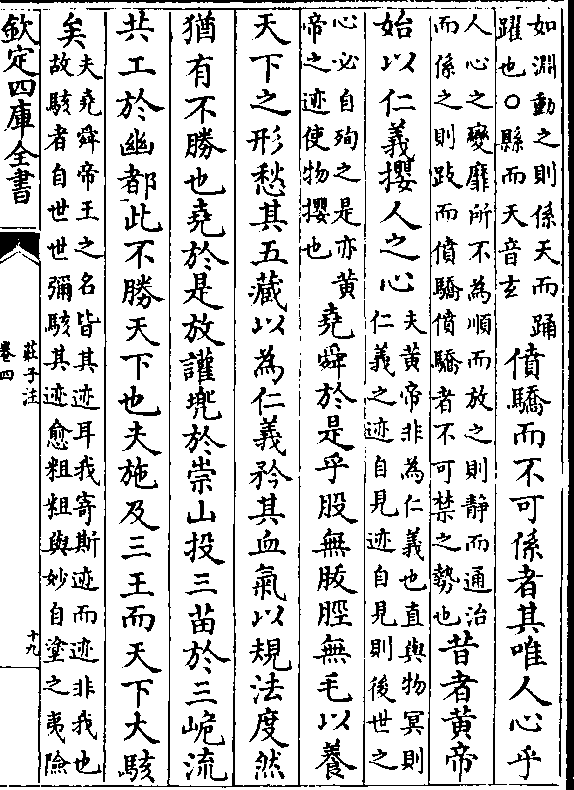 如淵動之則係天而踊
躍也○縣而天音玄
僨驕而不可係者其唯人心乎
人心之變靡所不為順而放之則静而通治
而係之則跂而僨驕僨驕者不可禁之勢也
昔者黄帝
始以仁義攖人之心
夫黄帝非為仁義也直與物冥則
仁義之迹自見迹自見則後世之
心必自殉之是亦黄
帝之迹使物攖也
堯舜於是乎股無胈脛無毛以養
天下之形愁其五藏以為仁義矜其血氣以規法度然
猶有不勝也堯於是放讙兠於崇山投三苗於三峗流
共工於幽都此不勝天下也夫施及三王而天下大駭
矣
夫堯舜帝王之名皆其迹耳我寄斯迹而迹非我也
故駭者自世世彌駭其迹愈粗粗與妙自塗之夷險
欽定四庫全書
莊子注
卷四
十九